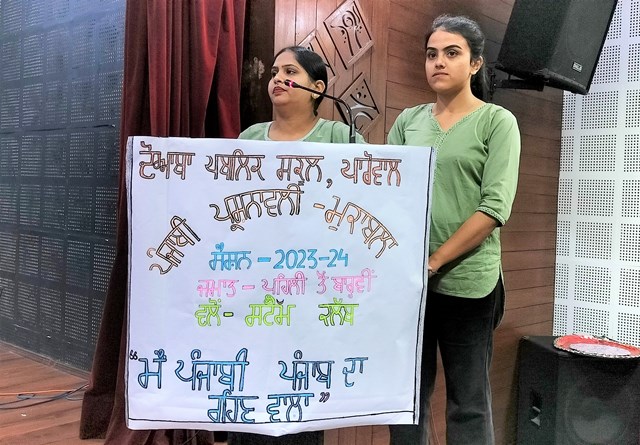 ਦੋਆਬਾ ਪਬਲਿਕ ਸਕੂਲ, ਪਾਰੋਵਾਲ
ਪੰਜਾਬੀ ਪ੍ਰਸ਼ਨਾਵਲੀ - ਮੁਕਾਬਲਾ
ਸੈਸ਼ਨ - 2023-24
ਜਮਾਤ - ਪਹਿਲੀ ਤੋਂ ਬਾਰ੍ਹਵੀਂ
ਵਲੋਂ - ਸਟੈੱਮ ਕਲੱਬ
"ਮੈਂ ਪੰਜਾਬੀ ਪੰਜਾਬ ਦਾ
ਰਹਿਣ ਵਾਲਾ"